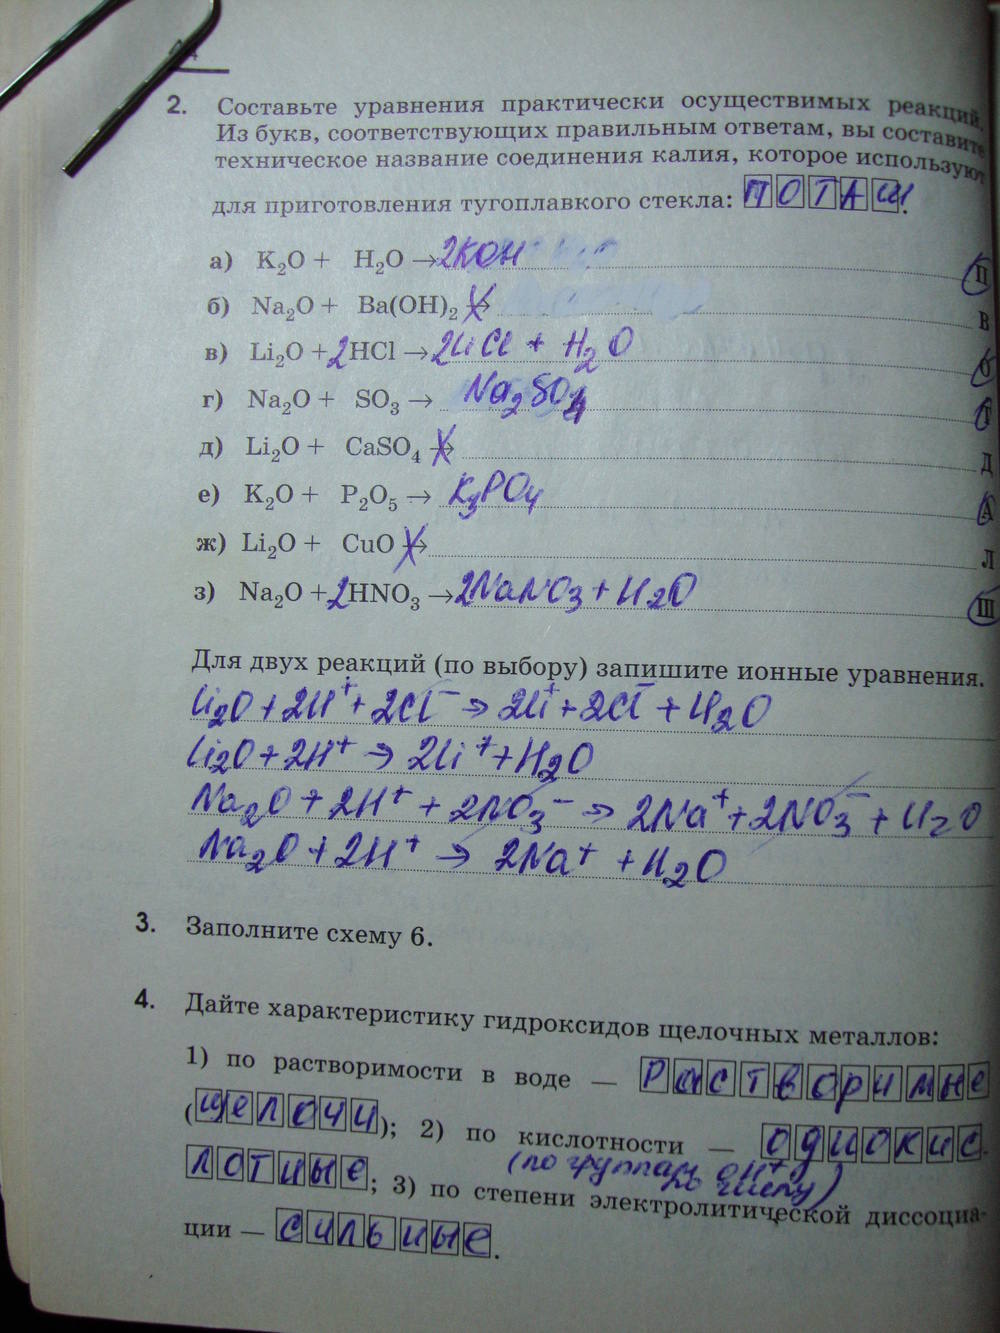 2. Составьте уравнения практически осуществимых реакций.
Из букв, соответствующих правильным ответам, вы составите
техническое название соединения калия, которое используют
для приготовления тугоплавкого стекла: ПОТАШ.
а) K₂O + H₂O → 2KOH П
б) Na₂O + Ba(OH)₂ → В
в) Li₂O + 2HCl → 2LiCl + H₂O О
г) Na₂O + SO₃ → Na₂SO₄ Т
д) Li₂O + CaSO₄ → Д
е) K₂O + P₂O₅ → K₃PO₄ А
ж) Li₂O + CuO → Л
з) Na₂O + 2HNO₃ → 2NaNO₃ + H₂O Ш
Для двух реакций (по выбору) запишите ионные уравнения.
Li₂O + 2H⁺ + 2Cl⁻ → 2Li⁺ + 2Cl⁻ + H₂O
Li₂O + 2H⁺ → 2Li⁺ + H₂O
Na₂O + 2H⁺ + 2NO₃⁻ → 2Na⁺ + 2NO₃⁻ + H₂O
Na₂O + 2H⁺ → 2Na⁺ + H₂O
3. Заполните схему 6.
4. Дайте характеристику гидроксидов щелочных металлов:
1) по растворимости в воде — растворимые
(щелочи); 2) по кислотности — однокис-
лотные; 3) по степени электролитической диссоциа-
(по группам OH⁺ числу)
ции — сильные.